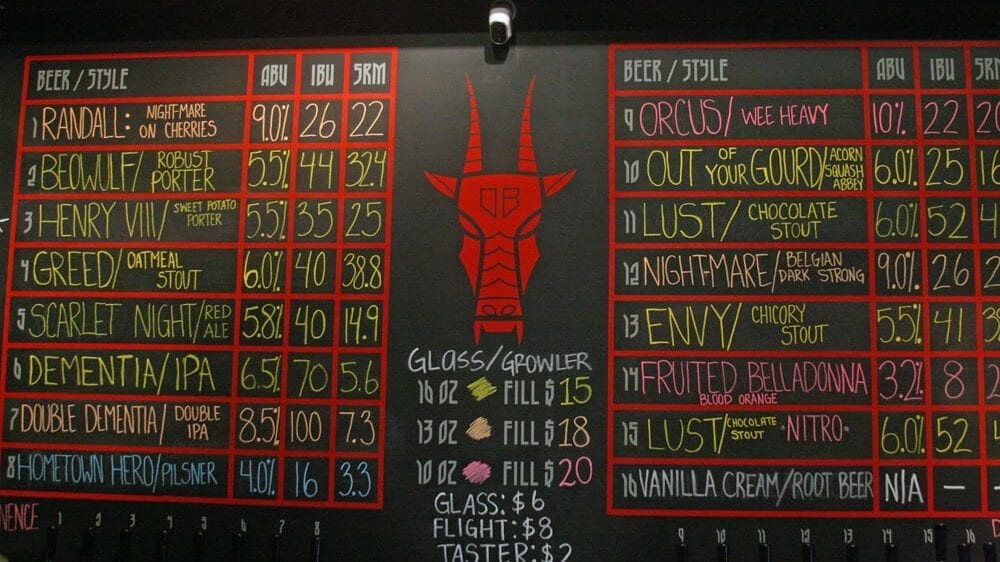 BEER / STYLE ABV IBU SRM
1 RANDALL: NIGHT-MARE ON CHERRIES 9.0% 26 22
2 BEOWULF/ ROBUST PORTER 5.5% 44 32.4
3 HENRY VIII/ SWEET POTATO PORTER 5.5% 35 25
4 GREED/ OATMEAL STOUT 6.0% 40 38.8
5 SCARLET NIGHT/ RED ALE 5.8% 40 14.9
6 DEMENTIA/IPA 6.5% 70 5.6
7 DOUBLE DEMENTIA/ DOUBLE IPA 8.5% 100 7.3
8 HOMETOWN HERO/PILSNER 4.0% 16 3.3
1 2 3 4 5 6 7 8
DB
GLASS/GROWLER
16 OZ FILL $ 15
13 OZ FILL $ 18
10 OZ FILL $ 20
GLASS: $6
FLIGHT: $8
TASTER: $2
BEER / STYLE ABV IBU SR
9 ORCUS/ WEE HEAVY 10% 22 20
10 OUT OF YOUR GOURD/ ACORN SQUASH ABBEY 6.0% 25 16
11 LUST/ CHOCOLATE STOUT 6.0% 52 4
12 NIGHT-MARE/ BELGIAN DARK STRONG 9.0% 26 2
13 ENVY/ CHICORY STOUT 5.5% 41
14 FRUITED BELLADONNA BLOOD ORANGE 3.2% 8 2
15 LUST/ CHOCOLATE STOUT ·NITRO· 6.0% 52 4
16 VANILLA CREAM/ROOT BEER N/A — —
9 10 11 12 13 14 15 16